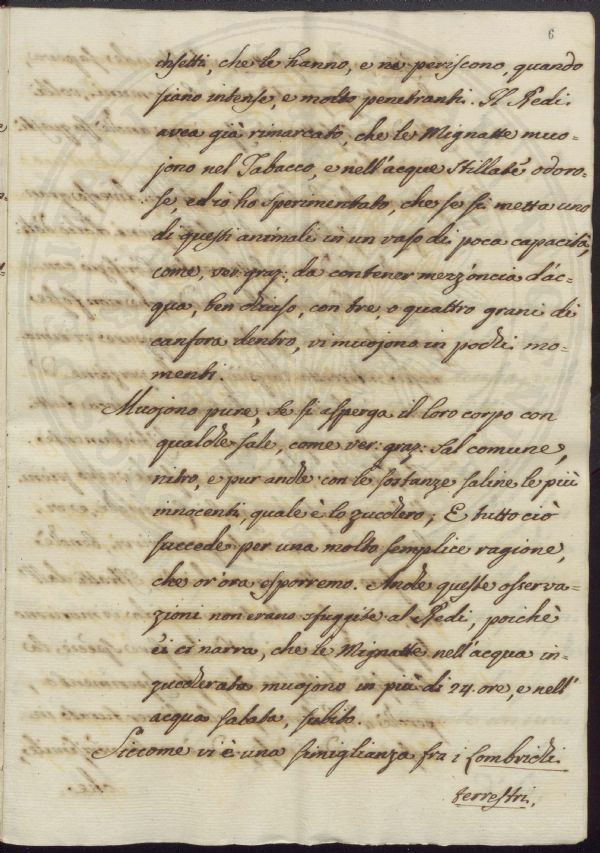 6
insetti, che le hanno, e ne periscono, quando
siano intense, e molto penetranti. Il Redi
avea già rimarcato, che le Mignatte muo-
jono nel Tabacco, e nell'acque stillate odoro-
se, ed io ho sperimentato, che se si metta uno
di questi animali in un vaso di poca capacità,
come, ver: graz: da contener mezz'oncia d'ac-
qua, ben chiuso, con tre, o quattro grani di
canfora dentro, vi muojono in pochi mo-
menti.
Muojono pure, se si asperga il loro corpo con
qualche sale, come ver: graz: sal comune,
nitro, e pur anche con le sostanze saline le più
innocenti, quale è lo zucchero; E tutto ciò
succede per una molto semplice ragione,
che or'ora esporremo. Anche queste osserva-
zioni non erano sfuggite al Redi, poichè
ei ci narra, che le Mignatte nell'acqua in-
zuccherata muojono in più di 24. ore, e nell'
acqua salata, subito.
Siccome vi è una simiglianza fra i Lombrichi
terrestri,